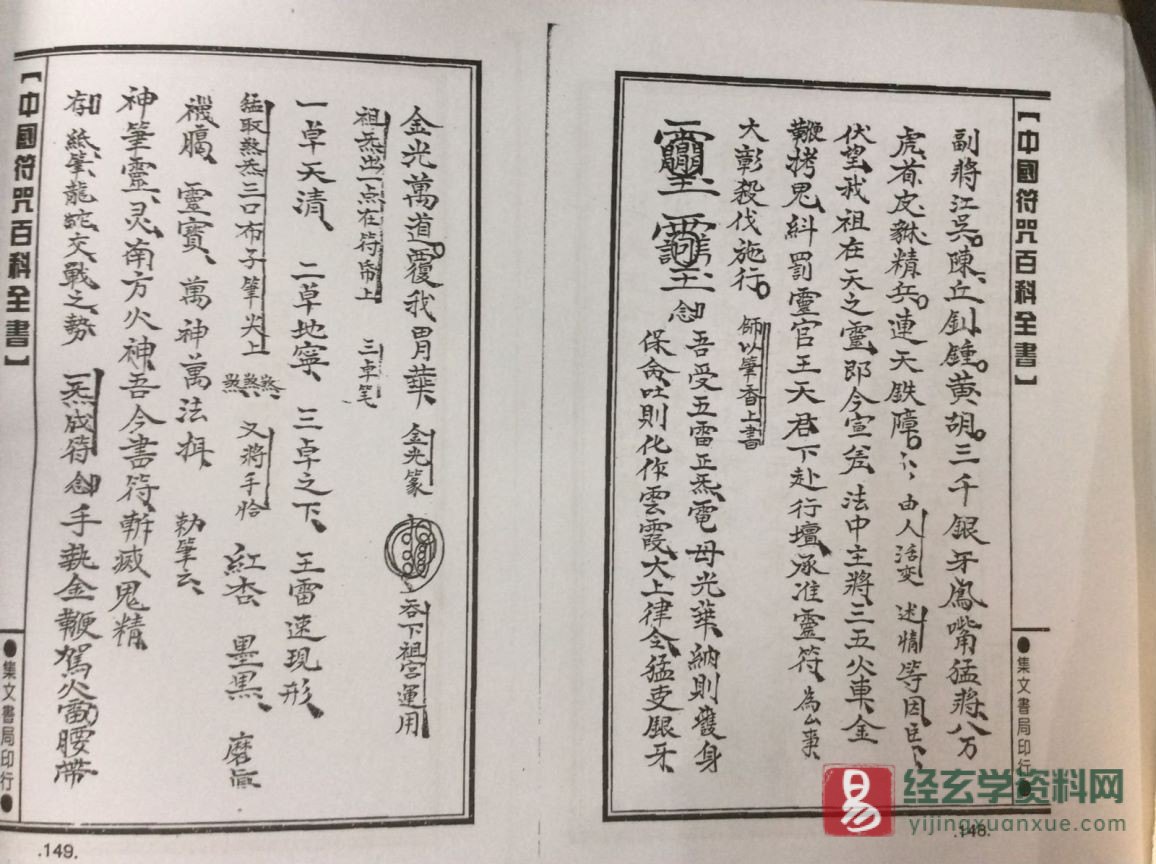 【中國符咒百科全書】
●集文書局印行●
副將江吳陳丘釗鍾黃胡三千銀牙鳳嘴猛將八万
虎首皮貅精兵連天鉄障 由人活变 述情等因臣
伏望我祖在天之靈即今宣差 法中主將三五火車金
鞭拷鬼糾罰靈官王天君下赴行壇承准靈符 為厶事
大彰殺伐施行 師以筆香上書
念
吾受五雷正炁電母光華納則護身
保命吐則化作雲霞大上律令猛吏銀牙
.148.
金光萬道覆我胃華 金光篆 吞下祖宮運用
祖炁出一点在符帋上 三卓笔
一草天清 二草地寧 三卓之下 王雷速現形
猛取煞炁三口布子筆尖上 煞煞煞 又將手恰 紅杏 墨黑 磨
靈寶 萬神萬法揖 勅筆云
神筆靈灵南方火神吾今書符斬滅鬼精
存 紙筆龍蛇交戰之勢 一炁成符 念 手執金鞭駕火雷腰帶
【中國符咒百科全書】
●集文書局印行●
.149.
易
经玄学资料网
yijingxuanxue.com